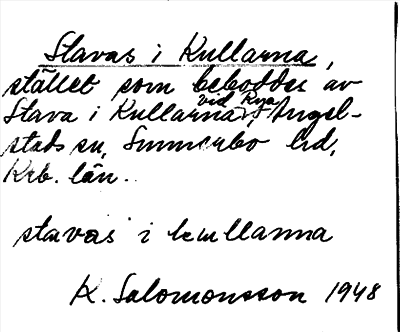 Stavas i Kullarna,
stället som beboddes av
Stava i Kullarna vid Rya, Angel-
stads sn, Sunnerbo hd,
Krb. län.
stavas i kullarna
K. Salomonsson 1948